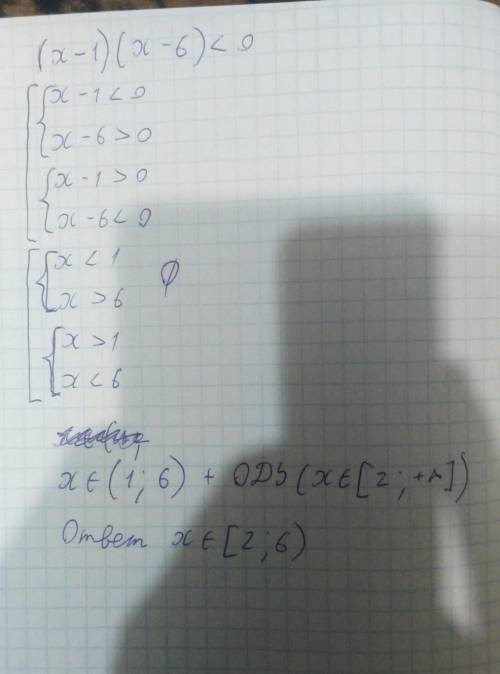 (x-1)(x-6)<0
x-1<0
x-6>0
x-1>0
x-6<0
x<1
x>6 ∅
x>1
x<6
x∈(1;6) + ОДЗ(x∈[2;+∞])
Ответ x∈[2;6)